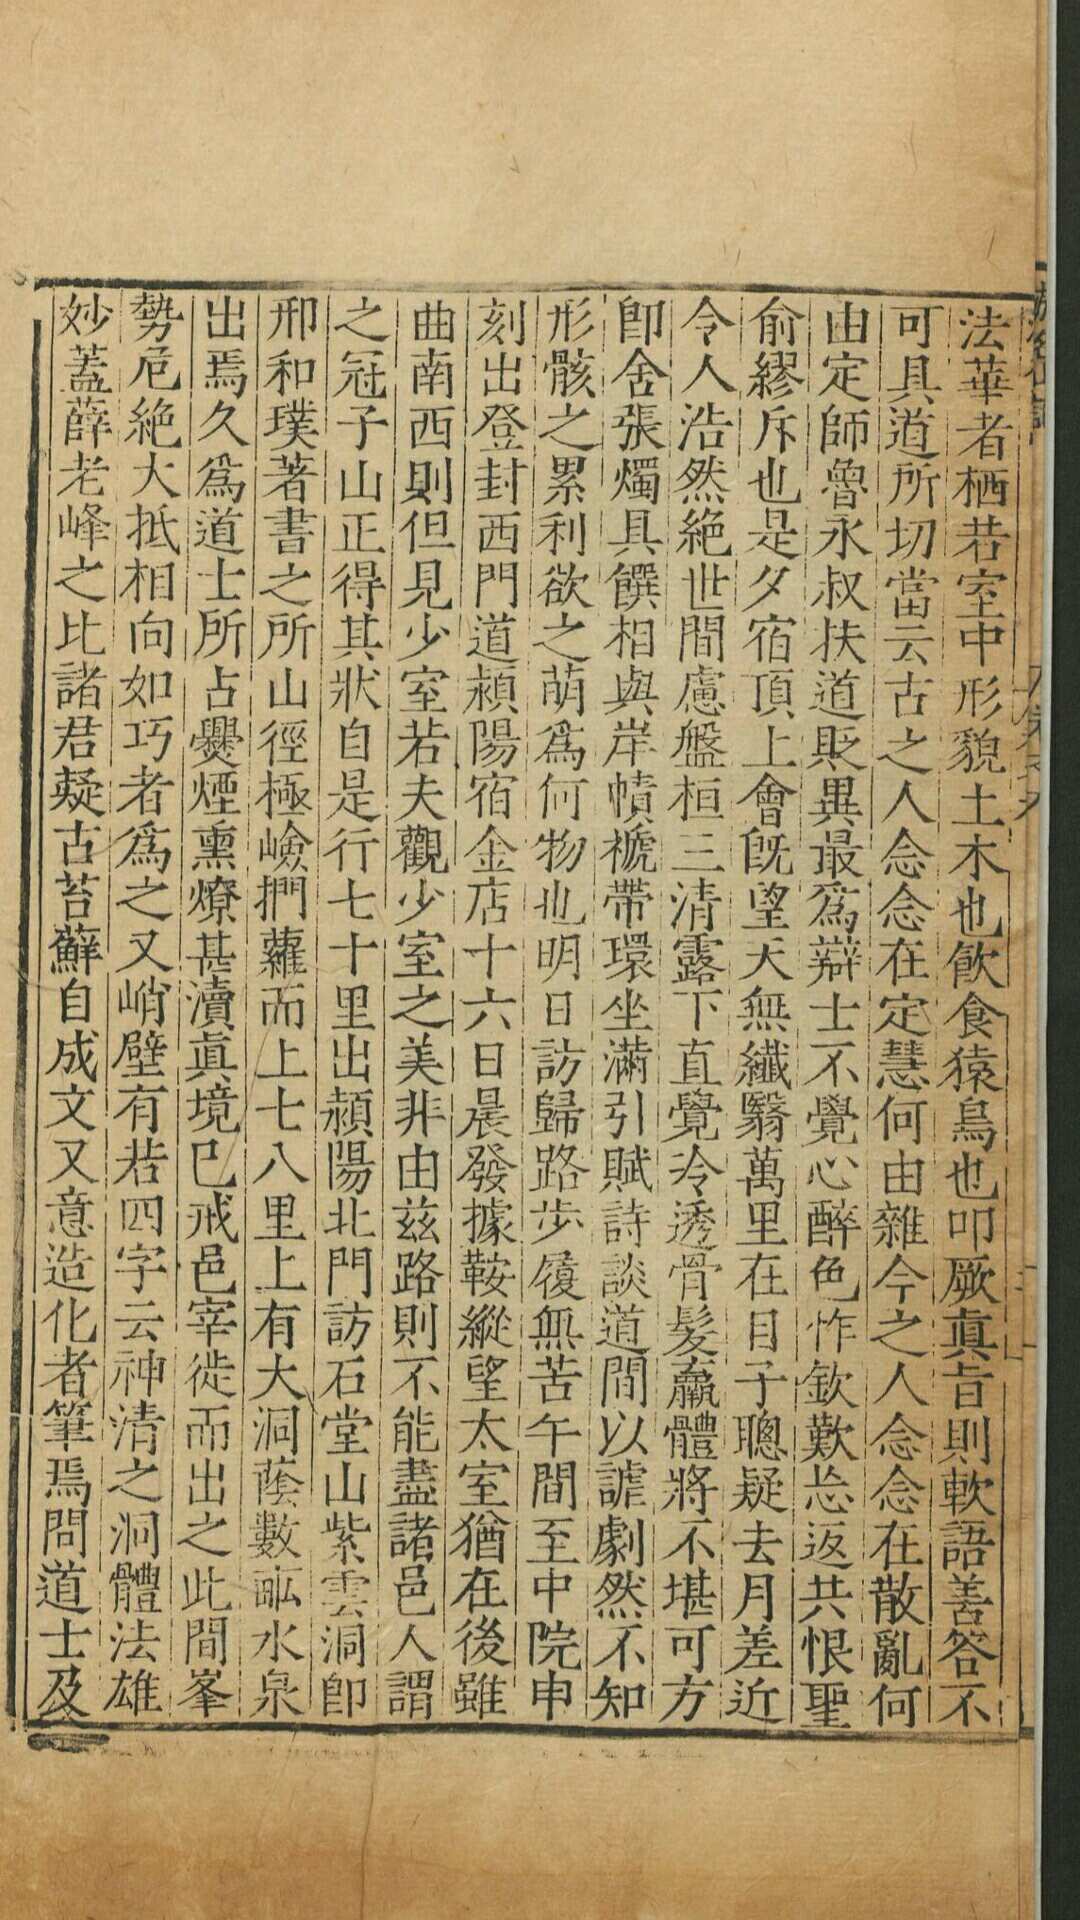 法華者栖若室中形貌土木也飲食猿鳥也叩厥眞旨則軟語善答不
可具道所切當云古之人念念在定慧何由雜今之人念念在散亂何
由定師魯永叔扶道貶異最爲辯士不覺心醉色怍欽歎忘返共恨聖
俞繆斥也是夕宿頂上會旣望天無纖翳萬里在目子聰疑去月差近
令人浩然絶世間慮盤桓三清露下直覺冷透骨髮羸體將不堪可方
卽舍張燭具饌相與岸幘褫帶環坐滿引賦詩談道間以謔劇然不知
形骸之累利欲之萌爲何物也明日訪歸路步履無苦午間至中院申
刻出登封西門道潁陽宿金店十六日晨發據鞍縱望太室猶在後雖
曲南西則但見少室若夫觀少室之美非由茲路則不能盡諸邑人謂
之冠子山正得其狀自是行七十里出潁陽北門訪石堂山紫雲洞卽
邢和璞著書之所山徑極嶮捫蘿而上七八里上有大洞蔭數畞水泉
出焉久爲道士所占爨煙熏燎甚瀆眞境已戒邑宰徙而出之此間峯
勢危絶大抵相向如巧者爲之又峭壁有若四字云神清之洞體法雄
妙蓋薛老峰之比諸君疑古苔蘚自成文又意造化者筆焉問道士及